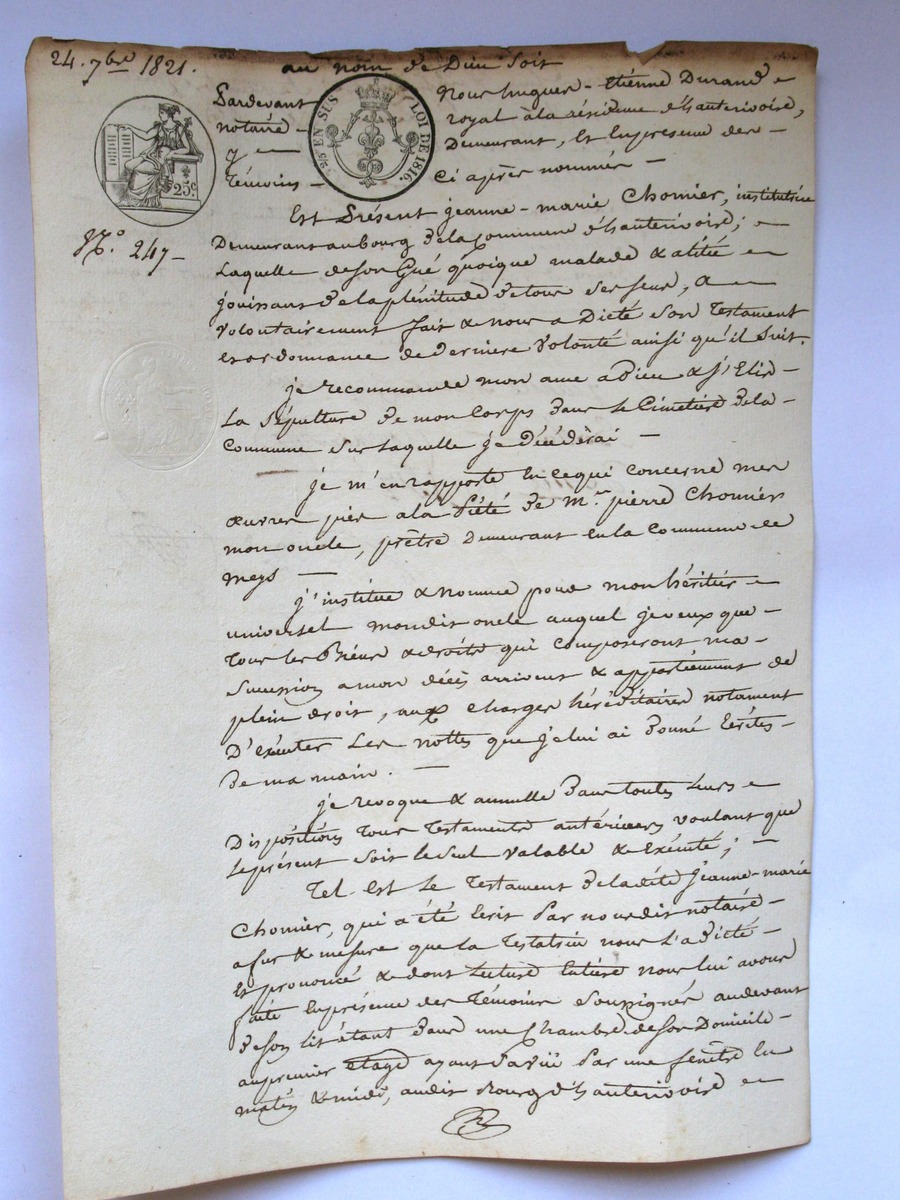 24. 7bre 1821.
au nom de Dieu Soit
Pardevant Nous hugues-Etiénne Durand
notaire royal à la résidence d'hauterivoire,
y Demeurant, Et En présence des
témoins Ci après nommés
25 c. EN SUS LOI DE 1816.
25 c.
No. 247
Est Présent jeanne-marie Chomier, institutrice
Demeurant au bourg de la Commune d'hauterivoire;
Laquelle de son Gré quoique malade & alitée
jouissant de la plénitude de tous ses sens, A
volontairement fait & nous a Dicté son Testament
et ordonnance de derniere Volonté ainsi qu'il Suit.
je recommande mon ame a Dieu & j'Elis
La Sépulture de mon Corps dans le Cimetière de la
Commune sur laquelle je Décéderai
je m'en rapporte En ce qui concerne mes
œuvres pies a la Piété de Mr. pierre Chomier
mon oncle, prêtre Demeurant En la Commune de
meys
j'institue & nomme pour mon héritier
universel mondit oncle auquel je veux que
tous les Biens & droits qui Composeront ma
Succession a mon décès arrivent & appartiennent de
plein droit, aux Charges héréditaires notament
D'exécuter Les nottes que je lui ai Donné Ecrites
De ma main.
je revoque & annulle Dans toutes Leurs
Dispositions tous testaments antérieurs voulant que
Le présent soit le seul valable & Exécuté;
Tel Est Le Testament de ladite Jeanne-marie
Chomier, qui a été Ecrit Par nousdit notaire
a fur & mesure que la Testatrice nous l'a Dicté
Et prononcé & dont Lecture Entière nous lui avons
faite En présence des Témoins Soussignés au devant
de son lit étant Dans une Chambre de Son Domicile
au premier étage ayant Par une fenêtre En
matin & midi, audit Bourg d'hauterivoire